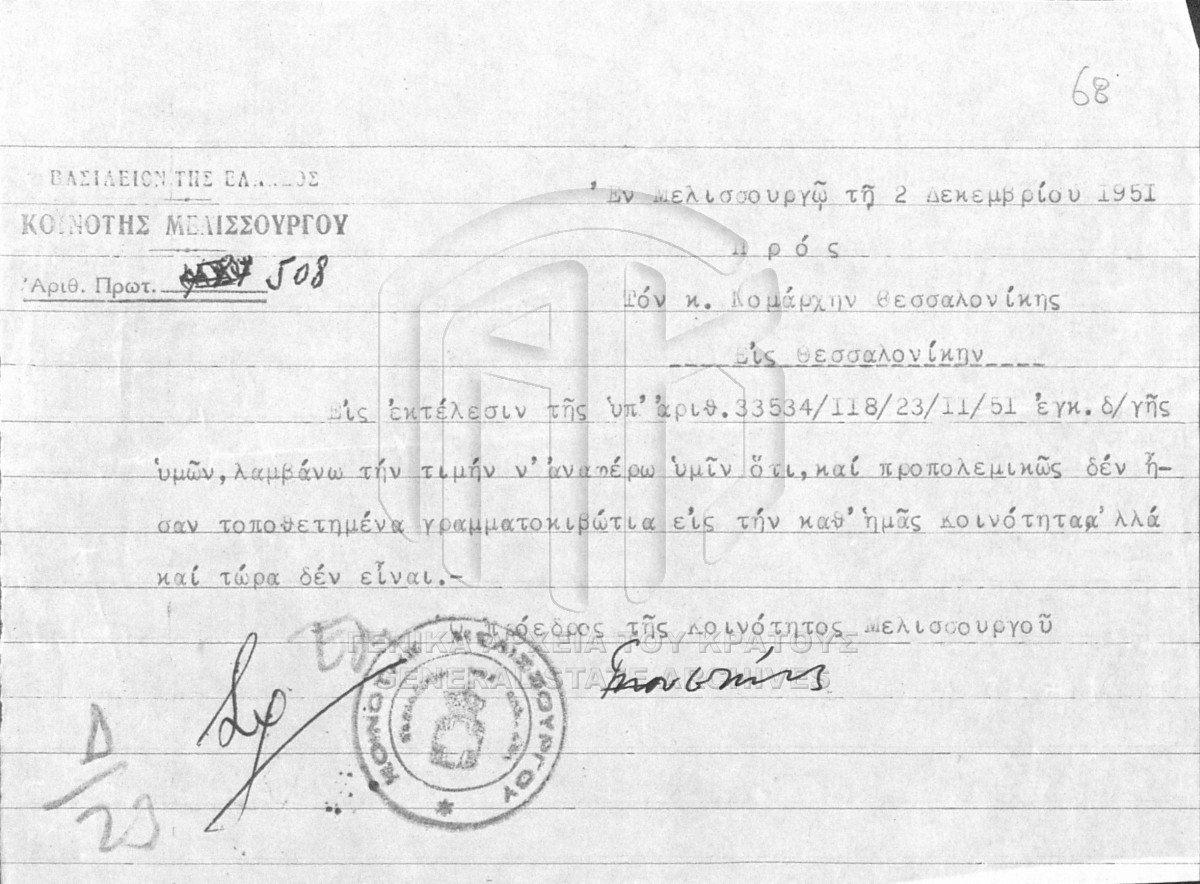 68
ΒΑΣΙΛΕΙΟΝ ΤΗΣ ΕΛΛΑΔΟΣ
ΚΟΙΝΟΤΗΣ ΜΕΛΙΣΣΟΥΡΓΟΥ
Ἀριθ. Πρωτ. 508
Ἐν Μελισσουργῷ τῇ 2 Δεκεμβρίου 1951
Πρός
Τόν κ. Νομάρχην Θεσσαλονίκης
Εἰς Θεσσαλονίκην
Εἰς ἐκτέλεσιν τῆς ὑπ' ἀριθ. 33534/118/23/11/51 ἐγκ. δ/γῆς
ὑμῶν, λαμβάνω τήν τιμήν ν' ἀναφέρω ὑμῖν ὅτι, καί προπολεμικῶς δέν ἦ-
σαν τοποθετημένα γραμματοκιβώτια εἰς τήν καθ' ἡμᾶς κοινότητα ἀλλά
καί τώρα δέν εἶναι.-
Ὁ πρόεδρος τῆς Κοινότητος Μελισσουργοῦ
ΓΕΝΙΚΑ ΑΡΧΕΙΑ ΤΟΥ ΚΡΑΤΟΥΣ
GENERAL STATE ARCHIVES
ΚΟΙΝΟΤΗΣ ΜΕΛΙΣΣΟΥΡΓΟΥ
Δ/23